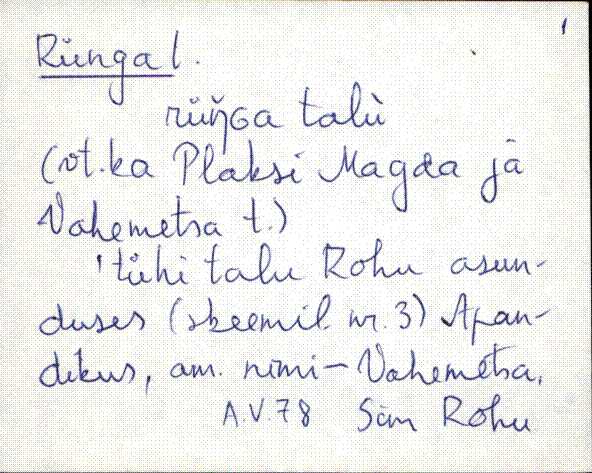 1
Rünga l.
rüŋ̆ɢa talù
(vt.ka Plaksi Magda jā
Vahemetsa t.)
'tühi talu Rohu asun-
duses (skeemil nr. 3) Apan-
dikus, am. nimi – Vahemetsa.
A.V.78 Sim Rohu